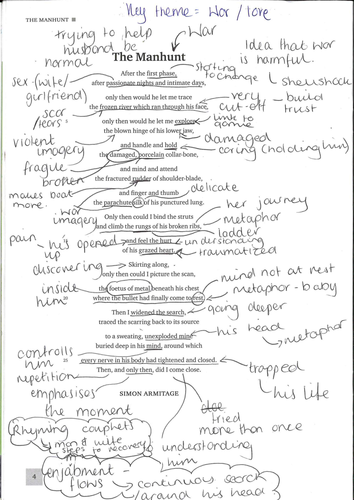 Key theme = War / Love
THE MANHUNT
trying to help
husband be
normal
War
Idea that war
is harmful.
The Manhunt
After the first phase,
after passionate nights and intimate days,
starting
to change
shellshock
sex (wife/
girlfriend)
only then would he let me trace
the frozen river which ran through his face,
very
cut-off
build
trust
scar
tears
only then would he let me explore
the blown hinge of his lower jaw,
link to
game
violent
imagery
damaged
and handle and hold
the damaged, porcelain collar-bone,
caring (holding him)
fragile
broken
and mind and attend
the fractured rudder of shoulder-blade,
makes boat
move.
and finger and thumb
the parachute silk of his punctured lung.
delicate
war
imagery
Only then could I bind the struts
and climb the rungs of his broken ribs,
her journey
metaphor
ladder
pain
he's opened
up
and feel the hurt
of his grazed heart.
understanding
traumatized
discovering
Skirting along,
only then could I picture the scan,
mind not at rest
inside
him
20
the foetus of metal beneath his chest
where the bullet had finally come to rest.
metaphor - baby
Then I widened the search,
traced the scarring back to its source
going deeper
to a sweating, unexploded mine
buried deep in his mind, around which
his head
metaphor
controls
him
25
every nerve in his body had tightened and closed.
Then, and only then, did I come close.
trapped
his life
repetition
emphasises
the moment
SIMON ARMITAGE
tried
more than once
Rhyming couplets
man & wife
steps to recovery
understanding
him
4
enjabment -
flows
continuous search
around his head